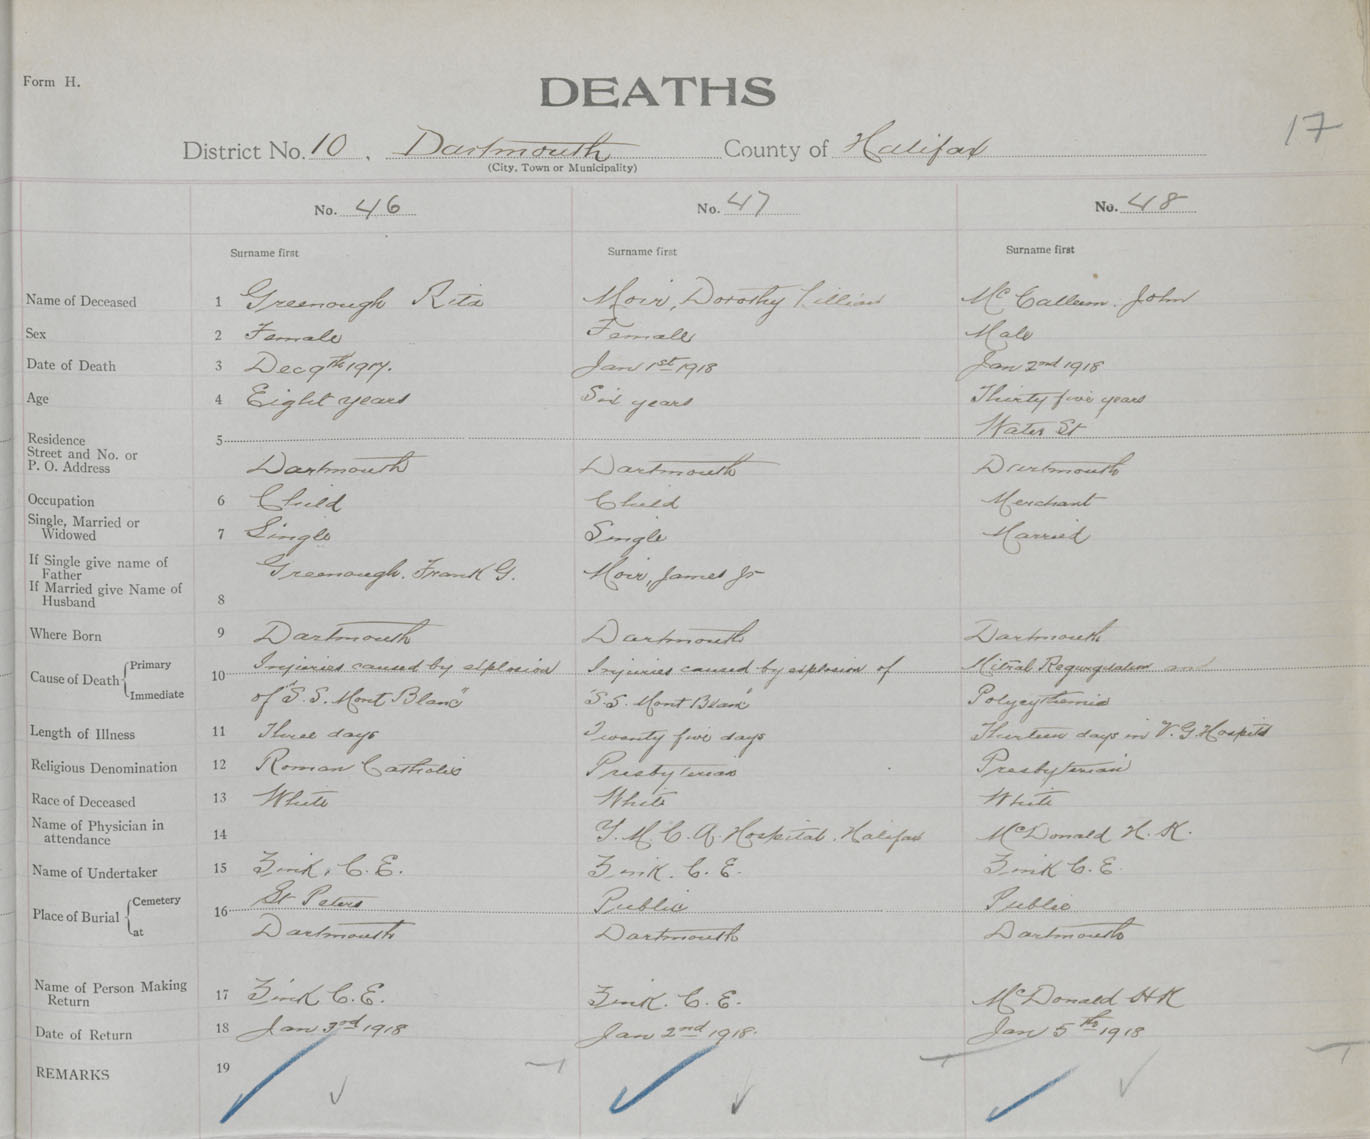 Form H.
DEATHS
17
District No. 10, Dartmouth County of Halifax
(City, Town or Municipality)
No. 46 No. 47 No. 48
Surname first Surname first Surname first
Name of Deceased 1 Greenough Rita Moir, Dorothy Lillian McCallum. John
Sex 2 Female Female Male
Date of Death 3 Dec 9th 1917. Jan 1st 1918 Jan 2nd 1918
Age 4 Eight years Six years Thirty five years
Residence 5 Water St
Street and No. or
P. O. Address Dartmouth Dartmouth Dartmouth
Occupation 6 Child Child Merchant
Single, Married or
Widowed 7 Single Single Married
If Single give name of
Father Greenough. Frank G. Moir, James Jr
If Married give Name of
Husband 8
Where Born 9 Dartmouth Dartmouth Dartmouth
Cause of Death Primary 10 Injuries caused by explosion Injuries caused by explosion of Mitral Regurgitation and
Immediate of "S.S. Mont Blanc" "S.S. Mont Blanc" Polycythemia
Length of Illness 11 Three days Twenty five days Thirteen days in V. G. Hospital
Religious Denomination 12 Roman Catholic Presbyterian Presbyterian
Race of Deceased 13 White White White
Name of Physician in
attendance 14 Y. M. C. A. Hospital. Halifax McDonald H. K.
Name of Undertaker 15 Zink, C. E. Zink. C. E. Zink C. E.
Place of Burial Cemetery 16 St Peters Public Public
at Dartmouth Dartmouth Dartmouth
Name of Person Making
Return 17 Zink C. E. Zink. C. E. McDonald H K
Date of Return 18 Jan 3rd 1918 Jan 2nd 1918. Jan 5th 1918
REMARKS 19